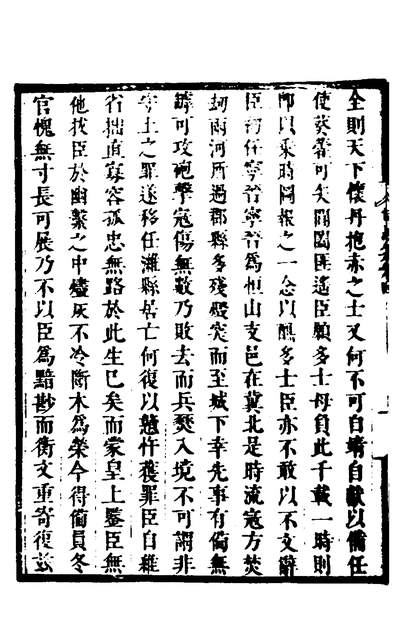 全則天下懷丹抱赤之士又何不可自靖自獻以備任
使葵藿可矢閶闔匪遙臣願多士毋負此千載一時則
即以乘時圖報之一念以醮多士臣亦不敢以不文辭
臣待任寧晉寧晉為恒山支邑在冀北是時流寇方焚
刼兩河所過郡縣多殘礮突而至城下幸先事有備無
罅可攻砲擊寇傷無數乃敗去而兵燹入境不可謂非
守土之罪遂移任濰縣居亡何復以戇忤獲罪臣自維
省拙直寡容孤忠無路於此生已矣而蒙皇上鑒臣無
他拔臣於幽縶之中燼灰不冷斷木為榮今得備員冬
官愧無寸長可展乃不以臣為黯尠而衡文重寄復玆